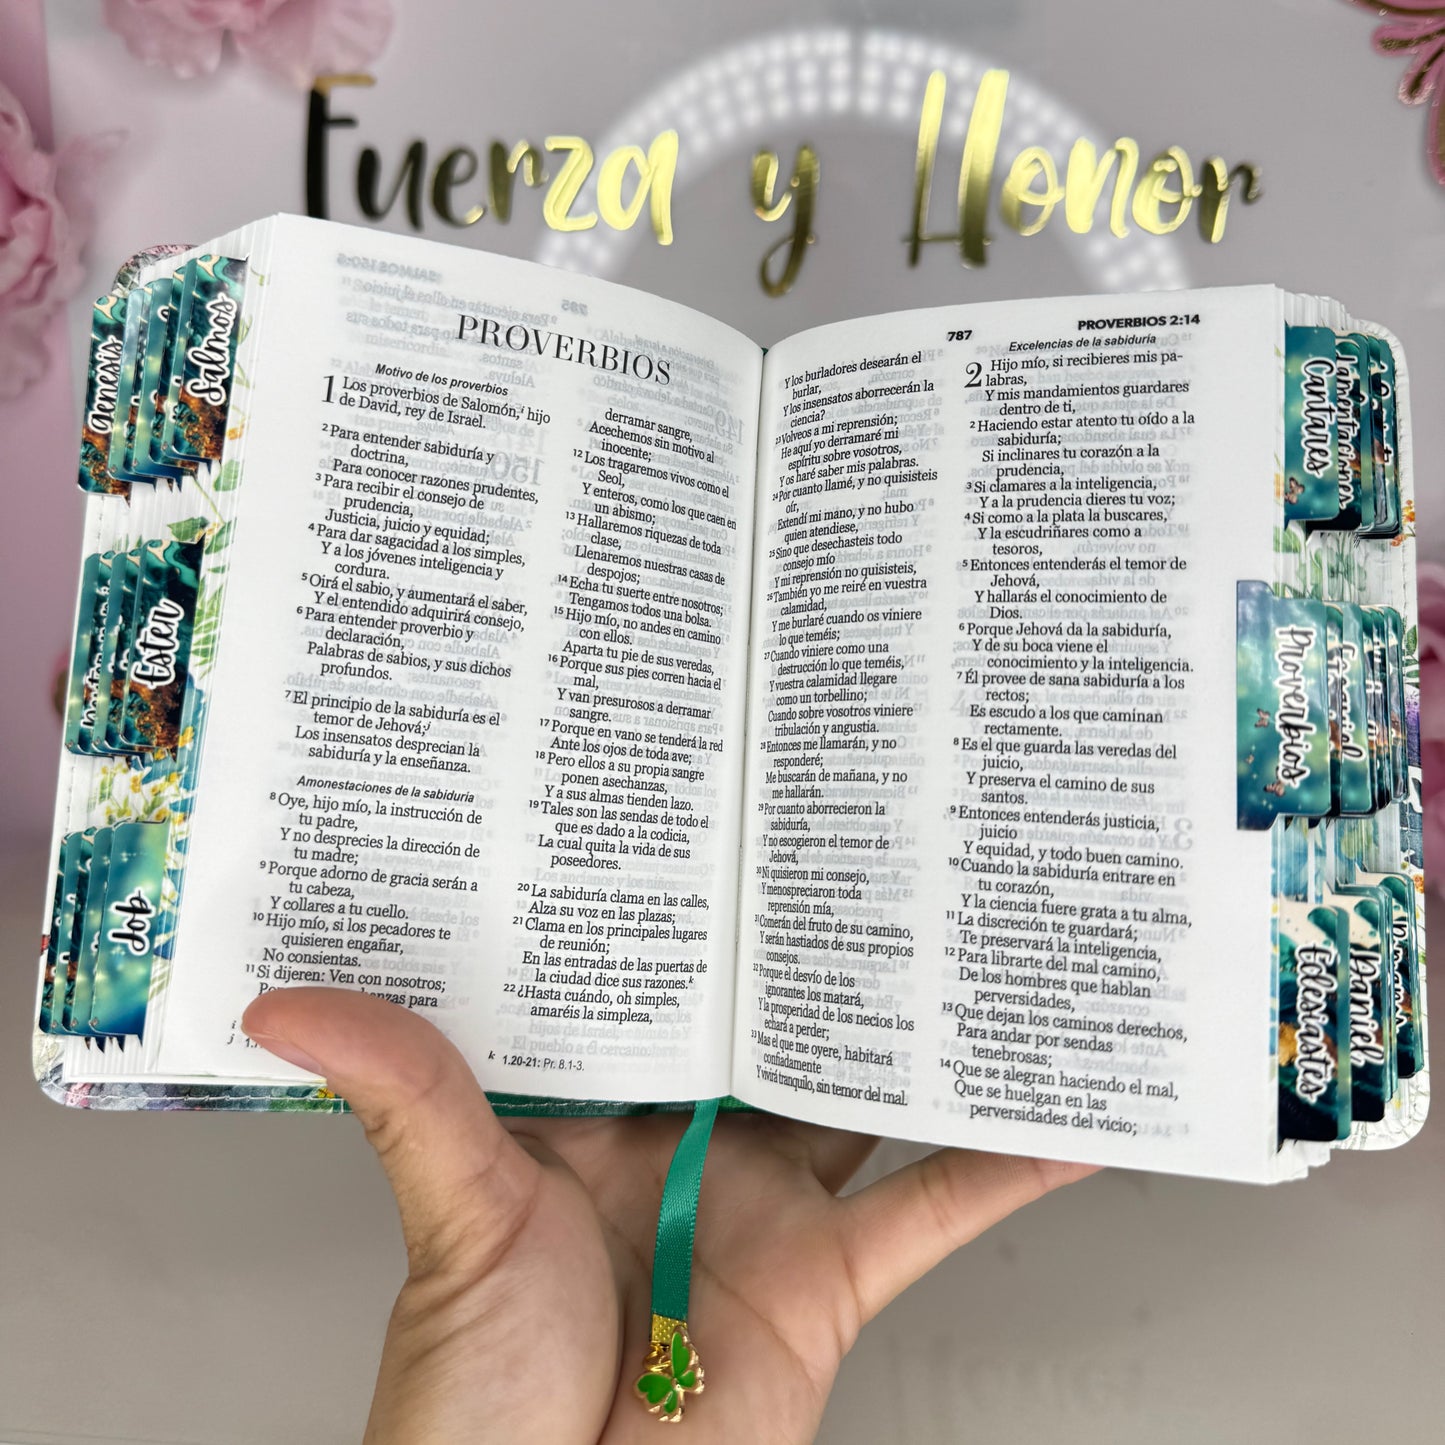 Fuerza y Honor
Génesis
Salmos
Ester
Job
PROVERBIOS
Motivo de los proverbios
1 Los proverbios de Salomón, i hijo
de David, rey de Israel.
2 Para entender sabiduría y
doctrina,
Para conocer razones prudentes,
3 Para recibir el consejo de
prudencia,
Justicia, juicio y equidad;
4 Para dar sagacidad a los simples,
Y a los jóvenes inteligencia y
cordura.
5 Oirá el sabio, y aumentará el saber,
Y el entendido adquirirá consejo,
6 Para entender proverbio y
declaración,
Palabras de sabios, y sus dichos
profundos.
7 El principio de la sabiduría es el
temor de Jehová; j
Los insensatos desprecian la
sabiduría y la enseñanza.
Amonestaciones de la sabiduría
8 Oye, hijo mío, la instrucción de
tu padre,
Y no desprecies la dirección de
tu madre;
9 Porque adorno de gracia serán a
tu cabeza,
Y collares a tu cuello.
10 Hijo mío, si los pecadores te
quisieren engañar,
No consientas.
11 Si dijeren: Ven con nosotros;
para
derramar sangre,
Acechemos sin motivo al
inocente;
12 Los tragaremos vivos como el
Seol,
Y enteros, como los que caen en
un abismo;
13 Hallaremos riquezas de toda
clase,
Llenaremos nuestras casas de
despojos;
14 Echa tu suerte entre nosotros;
Tengamos todos una bolsa.
15 Hijo mío, no andes en camino
con ellos.
Aparta tu pie de sus veredas,
16 Porque sus pies corren hacia el
mal,
Y van presurosos a derramar
sangre.
17 Porque en vano se tenderá la red
Ante los ojos de toda ave;
18 Pero ellos a su propia sangre
ponen asechanzas,
Y a sus almas tienden lazo.
19 Tales son las sendas de todo el
que es dado a la codicia,
La cual quita la vida de sus
poseedores.
20 La sabiduría clama en las calles,
Alza su voz en las plazas;
21 Clama en los principales lugares
de reunión;
En las entradas de las puertas de
la ciudad dice sus razones. k
22 ¿Hasta cuándo, oh simples,
amaréis la simpleza,
i
j
k 1.20-21: Pr. 8.1-3.
787
PROVERBIOS 2:14
Y los burladores desearán el
burlar,
Y los insensatos aborrecerán la
ciencia?
23 Volveos a mi reprensión;
He aquí yo derramaré mi
espíritu sobre vosotros,
Y os haré saber mis palabras.
24 Por cuanto llamé, y no quisisteis
oír,
Extendí mi mano, y no hubo
quien atendiese,
25 Sino que desechasteis todo
consejo mío
Y mi reprensión no quisisteis,
26 También yo me reiré en vuestra
calamidad,
Y me burlaré cuando os viniere
lo que teméis;
27 Cuando viniere como una
destrucción lo que teméis,
Y vuestra calamidad llegare
como un torbellino;
Cuando sobre vosotros viniere
tribulación y angustia.
28 Entonces me llamarán, y no
responderé;
Me buscarán de mañana, y no
me hallarán.
29 Por cuanto aborrecieron la
sabiduría,
Y no escogieron el temor de
Jehová,
30 Ni quisieron mi consejo,
Y menospreciaron toda
reprensión mía,
31 Comerán del fruto de su camino,
Y serán hastiados de sus propios
consejos.
32 Porque el desvío de los
ignorantes los matará,
Y la prosperidad de los necios los
echará a perder;
33 Mas el que me oyere, habitará
confiadamente
Y vivirá tranquilo, sin temor del mal.
Excelencias de la sabiduría
2 Hijo mío, si recibieres mis pa-
labras,
Y mis mandamientos guardares
dentro de ti,
2 Haciendo estar atento tu oído a la
sabiduría;
Si inclinares tu corazón a la
prudencia,
3 Si clamares a la inteligencia,
Y a la prudencia dieres tu voz;
4 Si como a la plata la buscares,
Y la escudriñares como a
tesoros,
5 Entonces entenderás el temor de
Jehová,
Y hallarás el conocimiento de
Dios.
6 Porque Jehová da la sabiduría,
Y de su boca viene el
conocimiento y la inteligencia.
7 Él provee de sana sabiduría a los
rectos;
Es escudo a los que caminan
rectamente.
8 Es el que guarda las veredas del
juicio,
Y preserva el camino de sus
santos.
9 Entonces entenderás justicia,
juicio
Y equidad, y todo buen camino.
10 Cuando la sabiduría entrare en
tu corazón,
Y la ciencia fuere grata a tu alma,
11 La discreción te guardará;
Te preservará la inteligencia,
12 Para librarte del mal camino,
De los hombres que hablan
perversidades,
13 Que dejan los caminos derechos,
Para andar por sendas
tenebrosas;
14 Que se alegran haciendo el mal,
Que se huelgan en las
perversidades del vicio;
Cantares
Lamentaciones
Proverbios
Ezequiel
Eclesiastés
Daniel